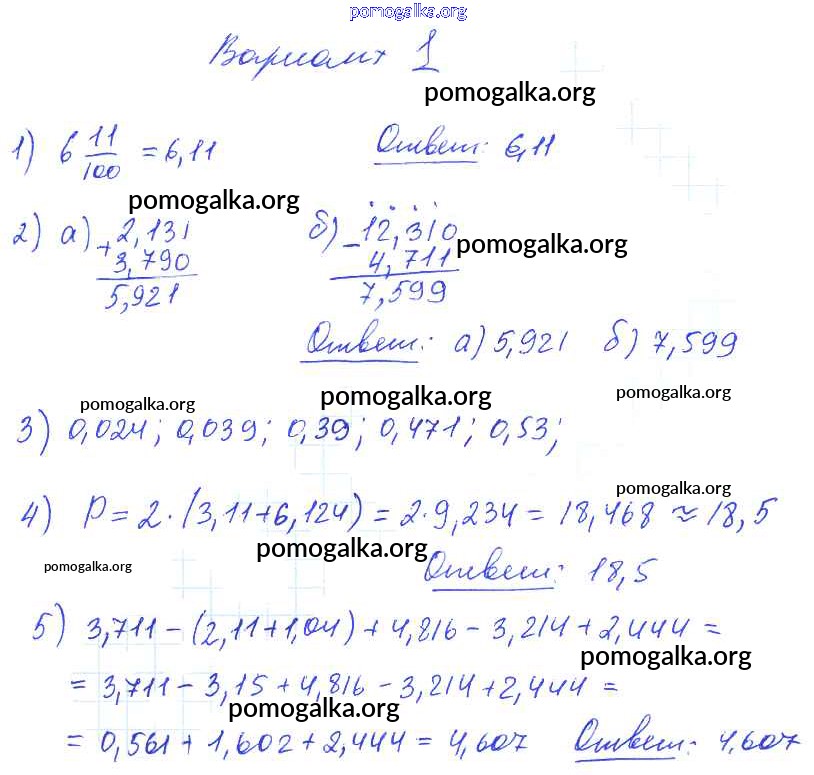 pomogalka.org
Вариант 1
pomogalka.org
1) 6 11/100 = 6,11 Ответ: 6,11
pomogalka.org
2) а) + 2,131 б) - 12,310
pomogalka.org
3,790 4,711
5,921 7,599
Ответ: а) 5,921 б) 7,599
pomogalka.org pomogalka.org pomogalka.org
3) 0,024; 0,039; 0,39; 0,471; 0,53;
pomogalka.org
4) P = 2 · (3,11+6,124) = 2·9,234 = 18,468 ≈ 18,5
pomogalka.org pomogalka.org
Ответ: 18,5
5) 3,711 - (2,11+1,04) + 4,816 - 3,214 + 2,444 =
pomogalka.org
= 3,711 - 3,15 + 4,816 - 3,214 + 2,444 =
pomogalka.org
= 0,561 + 1,602 + 2,444 = 4,607 Ответ: 4,607